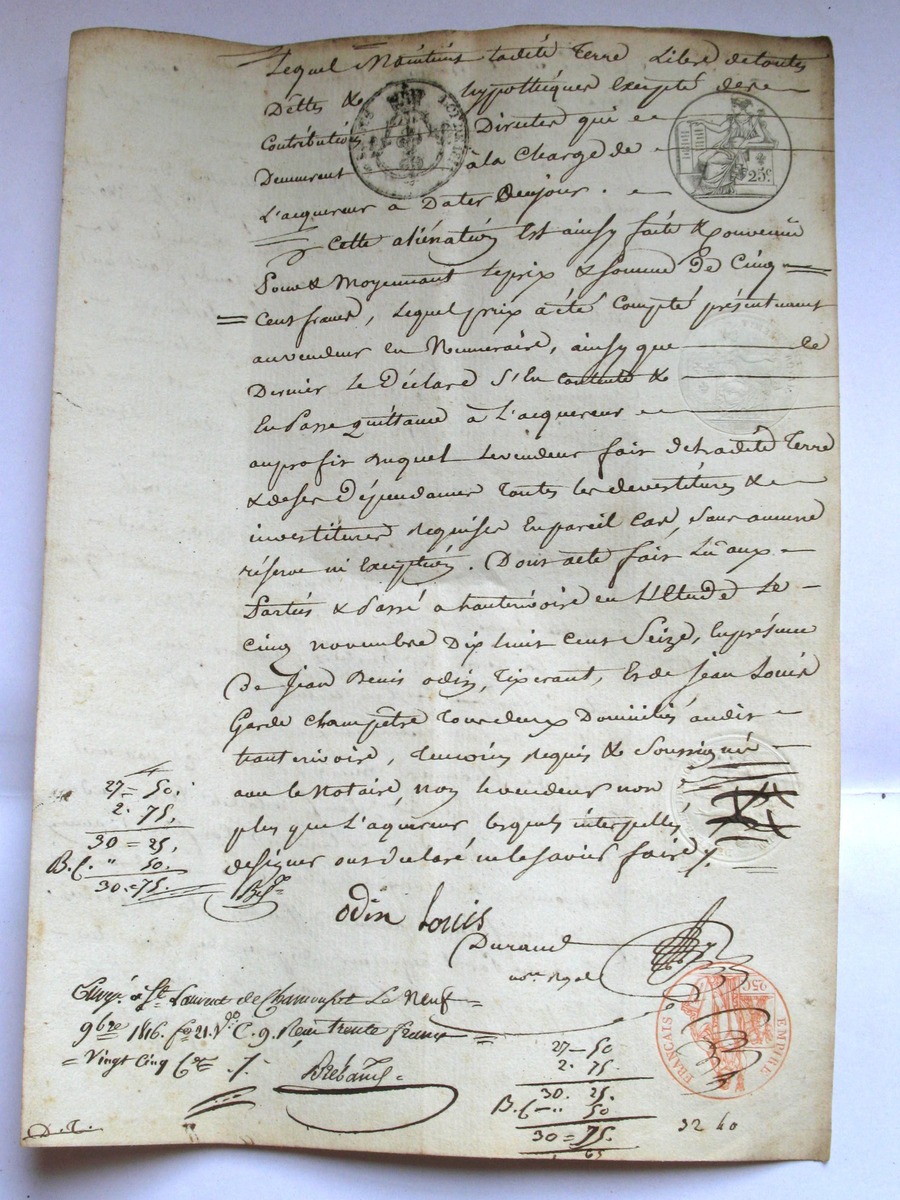 Lequel Maintient ladite Terre Libre de toutes
Dèttes & hypothèques Excepté de se
Contributions Dirèctes qui
Demeurent à la Charge de
L'acquereur à Dater Dence jour.
Cette aliénation Est ainsy faite & Convenüe
Pour & Moyennant le prix & somme De Cinq =
= Cent francs, Lequel prix à été Compté présentement
au vendeur en Numeraire, ainsy que ce
Dernier Le Déclare S'En Contente &
En Passe quittance à L'acquereur
au profit duquel Le vendeur fait de ladite Terre
& de ses Dépendances Toutes les devestitures &
investitures Requises En pareil Cas, Sans aucune
réserve ni Exception. Dont acte fait Lû aux
Parties & Passé a hauterivoire en L'Etude Le
Cinq novembre Dix huit Cent Seize, En présence
De Jean Denis odin, Tixerant, Et de Jean Louis
Garde Champêtre Tous deux Domiciliés audit
hauterivoire, Temoins Requis & Soussignés
avec le Notaire, non le vendeur non
plus que L'aquereur lesquels interpellés
de signer ont declaré ne le savoir faire /.
27 = 50.
2. 75.
30 = 25.
B.C. " 50.
30 = 75.
odin Louis
Durand
not.re Royal
Enrg.é à St. Laurent de Chamousset Le Neuf
9bre 1816. fo 21. Vo C. 9. Reçu trente francs
= Vingt Cinq Ces. /.
27 - 50
2. 75.
30. 25.
B.C - " 50
30 = 75.
65
32 40
25c.
EMPIRE FRANÇAIS